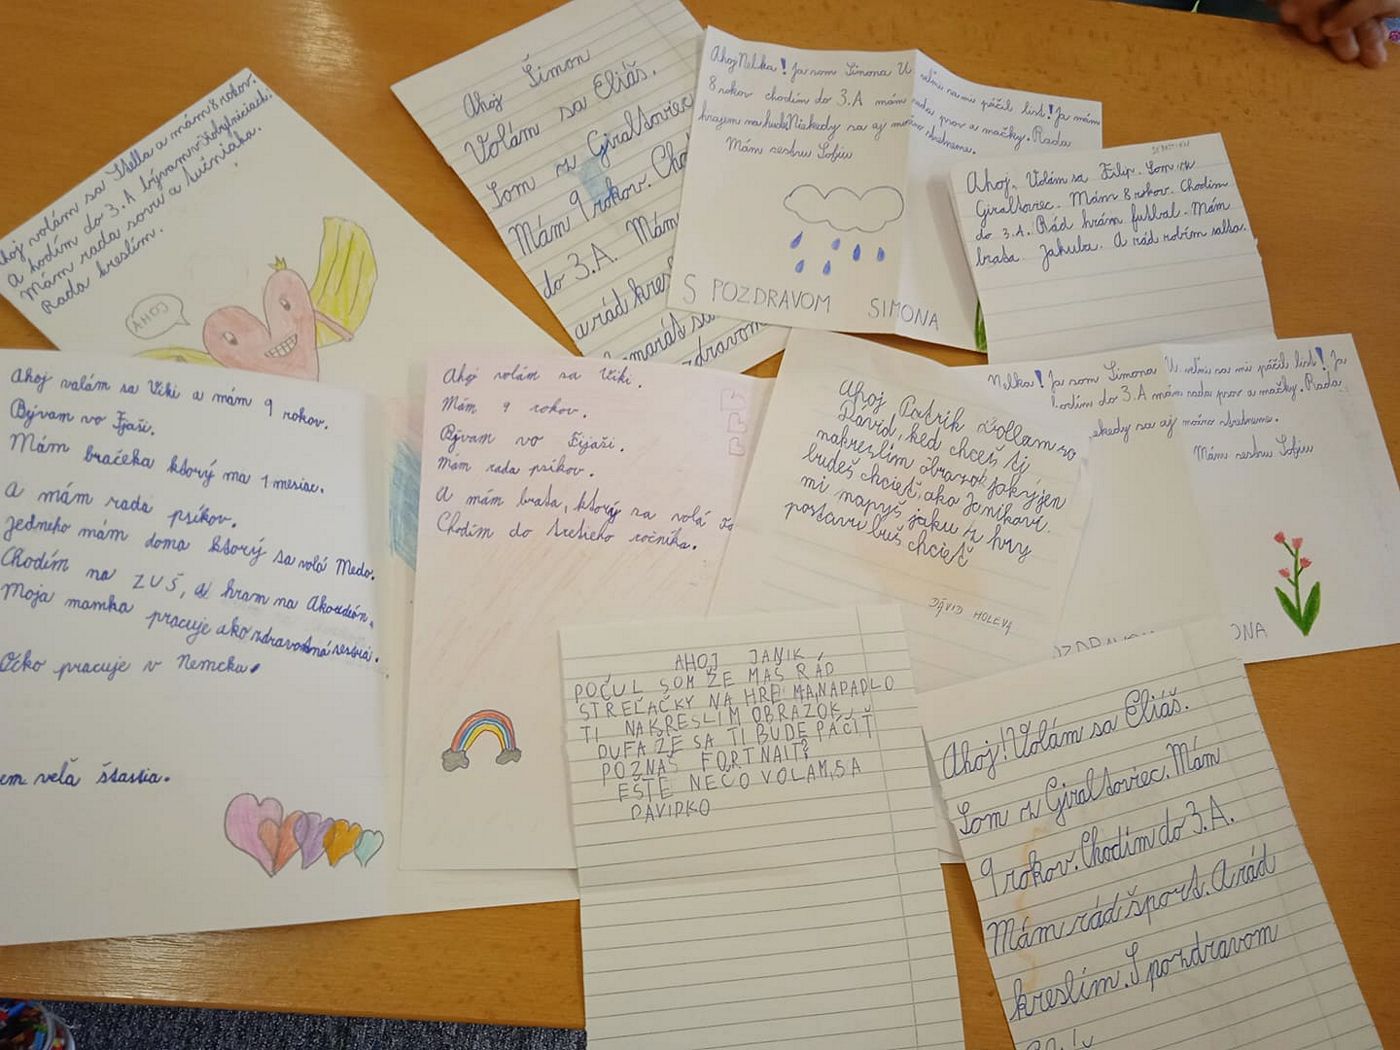 Ahoj volám sa Stella a mám 8 rokov.
A chodím do 3.A bývam v Kobylniciach.
Mám rada sovu a lučniaka.
Rada kreslím.
AHOJ
Ahoj Šimon
Volám sa Eliáš.
Som z Giraltoviec
Mám 9 rokov. Cho
do 3.A. Mám
a rád kres
kamarát sa
zdravom
Ahoj Nelka! Ja som Simona U
8 rokov chodím do 3.A mám
hrajem na husle Niekedy sa aj
Mám sestru Sofiu
S POZDRAVOM SIMONA
sa mi páčil list! Ja mám
rada psov a mačky. Rada
stretneme.
Ahoj, Volám sa Filip. Som z
Giraltoviec. Mám 8 rokov. Chodím
do 3.A. Rád hrám futbal. Mám
brata Jakuba. A rád robím salta.
Ahoj valám sa Viki a mám 9 rokov.
Bývam vo Fijaši.
Mám bračeka ktorý ma 1 mesiac.
A mám rada psíkov.
Jedneho mám doma ktorý sa volá Medo.
Chodím na ZUŠ, a hram na Akordión.
Moja mamka pracuje ako zdravotná sestra.
Ocko pracuje v Nemcku.
em velă štastia.
Ahoj volám sa Viki.
Mám 9 rokov.
Bývam vo Fijaši.
Mám rada psíkov.
A mám brata, ktorý sa volá
Chodím do tretieho ročníka.
Ahoj Patrik vollam sa
Dávid, keď chceš ti
nakreslím obrazok jaký jen
budeš chcieť, ako Janikovi.
mi napyš jaku z hry
postavu buš chcieť
DÁVID HOLEVA
Nelka! Ja som Simona U sa mi páčil list! Ja
hodím do 3.A mám rada psov a mačky. Rada
ekedy sa aj stretneme.
Mám sestru Sofiu
OZDRAVOM ONA
AHOJ JANIK,
POČUL SOM ŽE MAŠ RÁD
STREĽAČKY NA HRP MANAPADLO
TI NAKRESLIM OBRAZOK
DUFA ŽE SA TI BUDE PÁČIŤ
POZNAŠ FORTNAIT?
EŠTE NEČO VOLAM SA
DAVIDKO
Ahoj! Volám sa Eliáš.
Som z Giraltoviec. Mám
9 rokov. Chodím do 3.A.
Mám rád šport. A rád
kreslím. S pozdravom